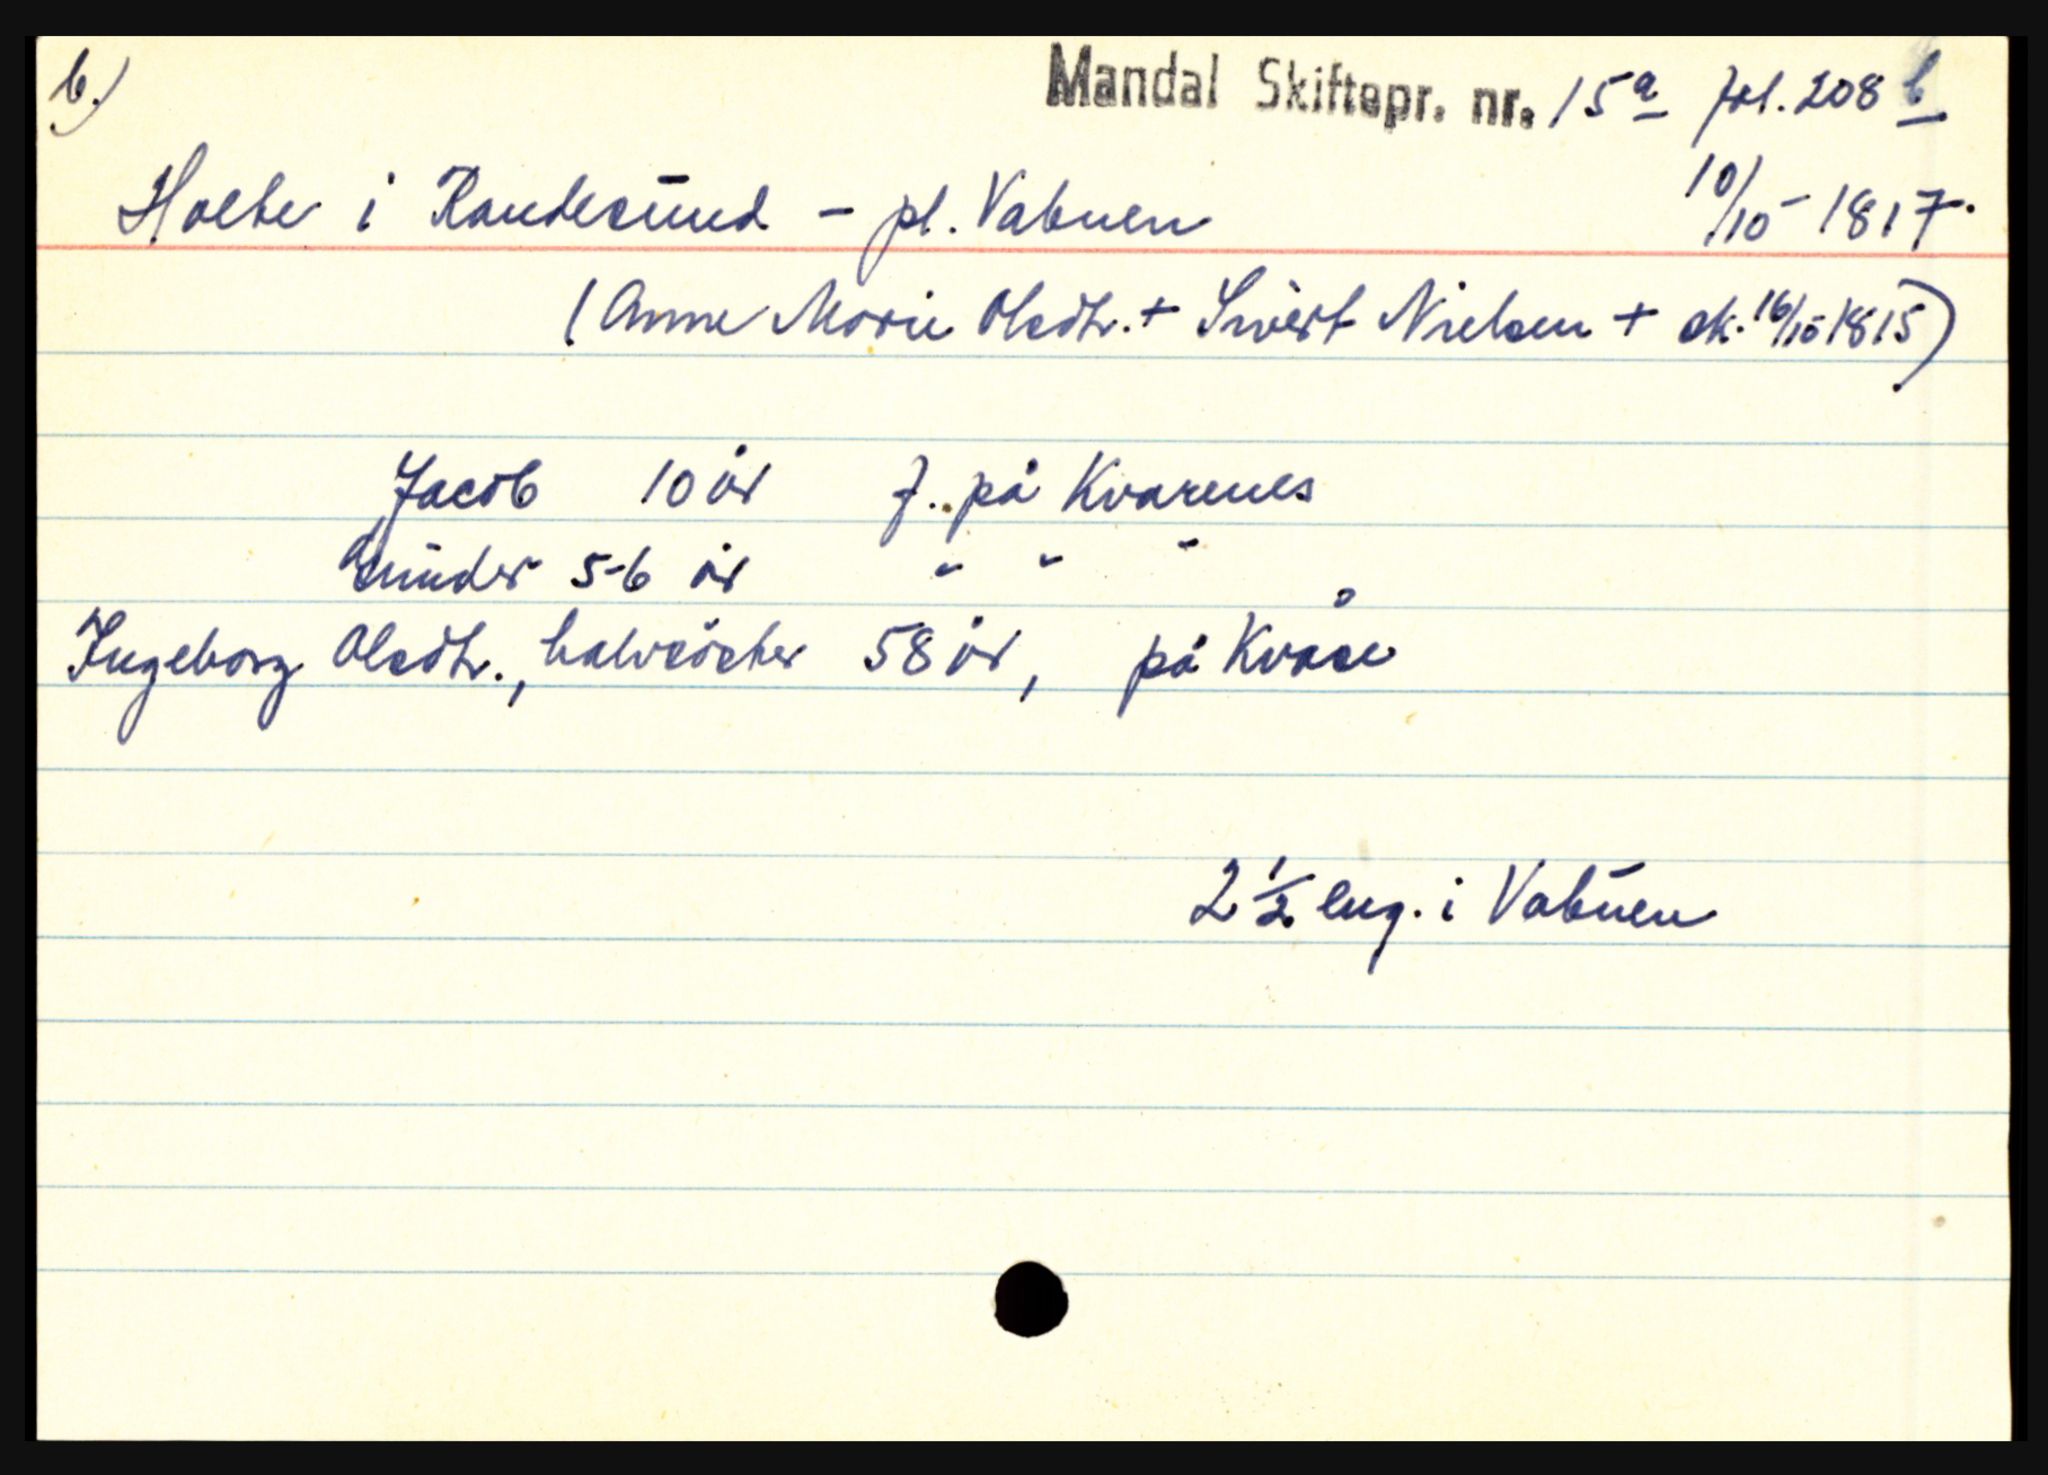 b.)
Mandal Skiftepr. nr. 15 a fol. 208 b
Holte i Randesund - pl. Vabuen 10/10 - 1817.
(Anne Marie Olsdtr. + Sivert Nielsen + sk. 16/10 1815)
Jacob 10 år f. på Kvarenes
Gunder 5-6 år " " "
Ingeborg Olsdtr., halvsöster 58 år, på Kvåse
2 1/2 eng. i Vabuen